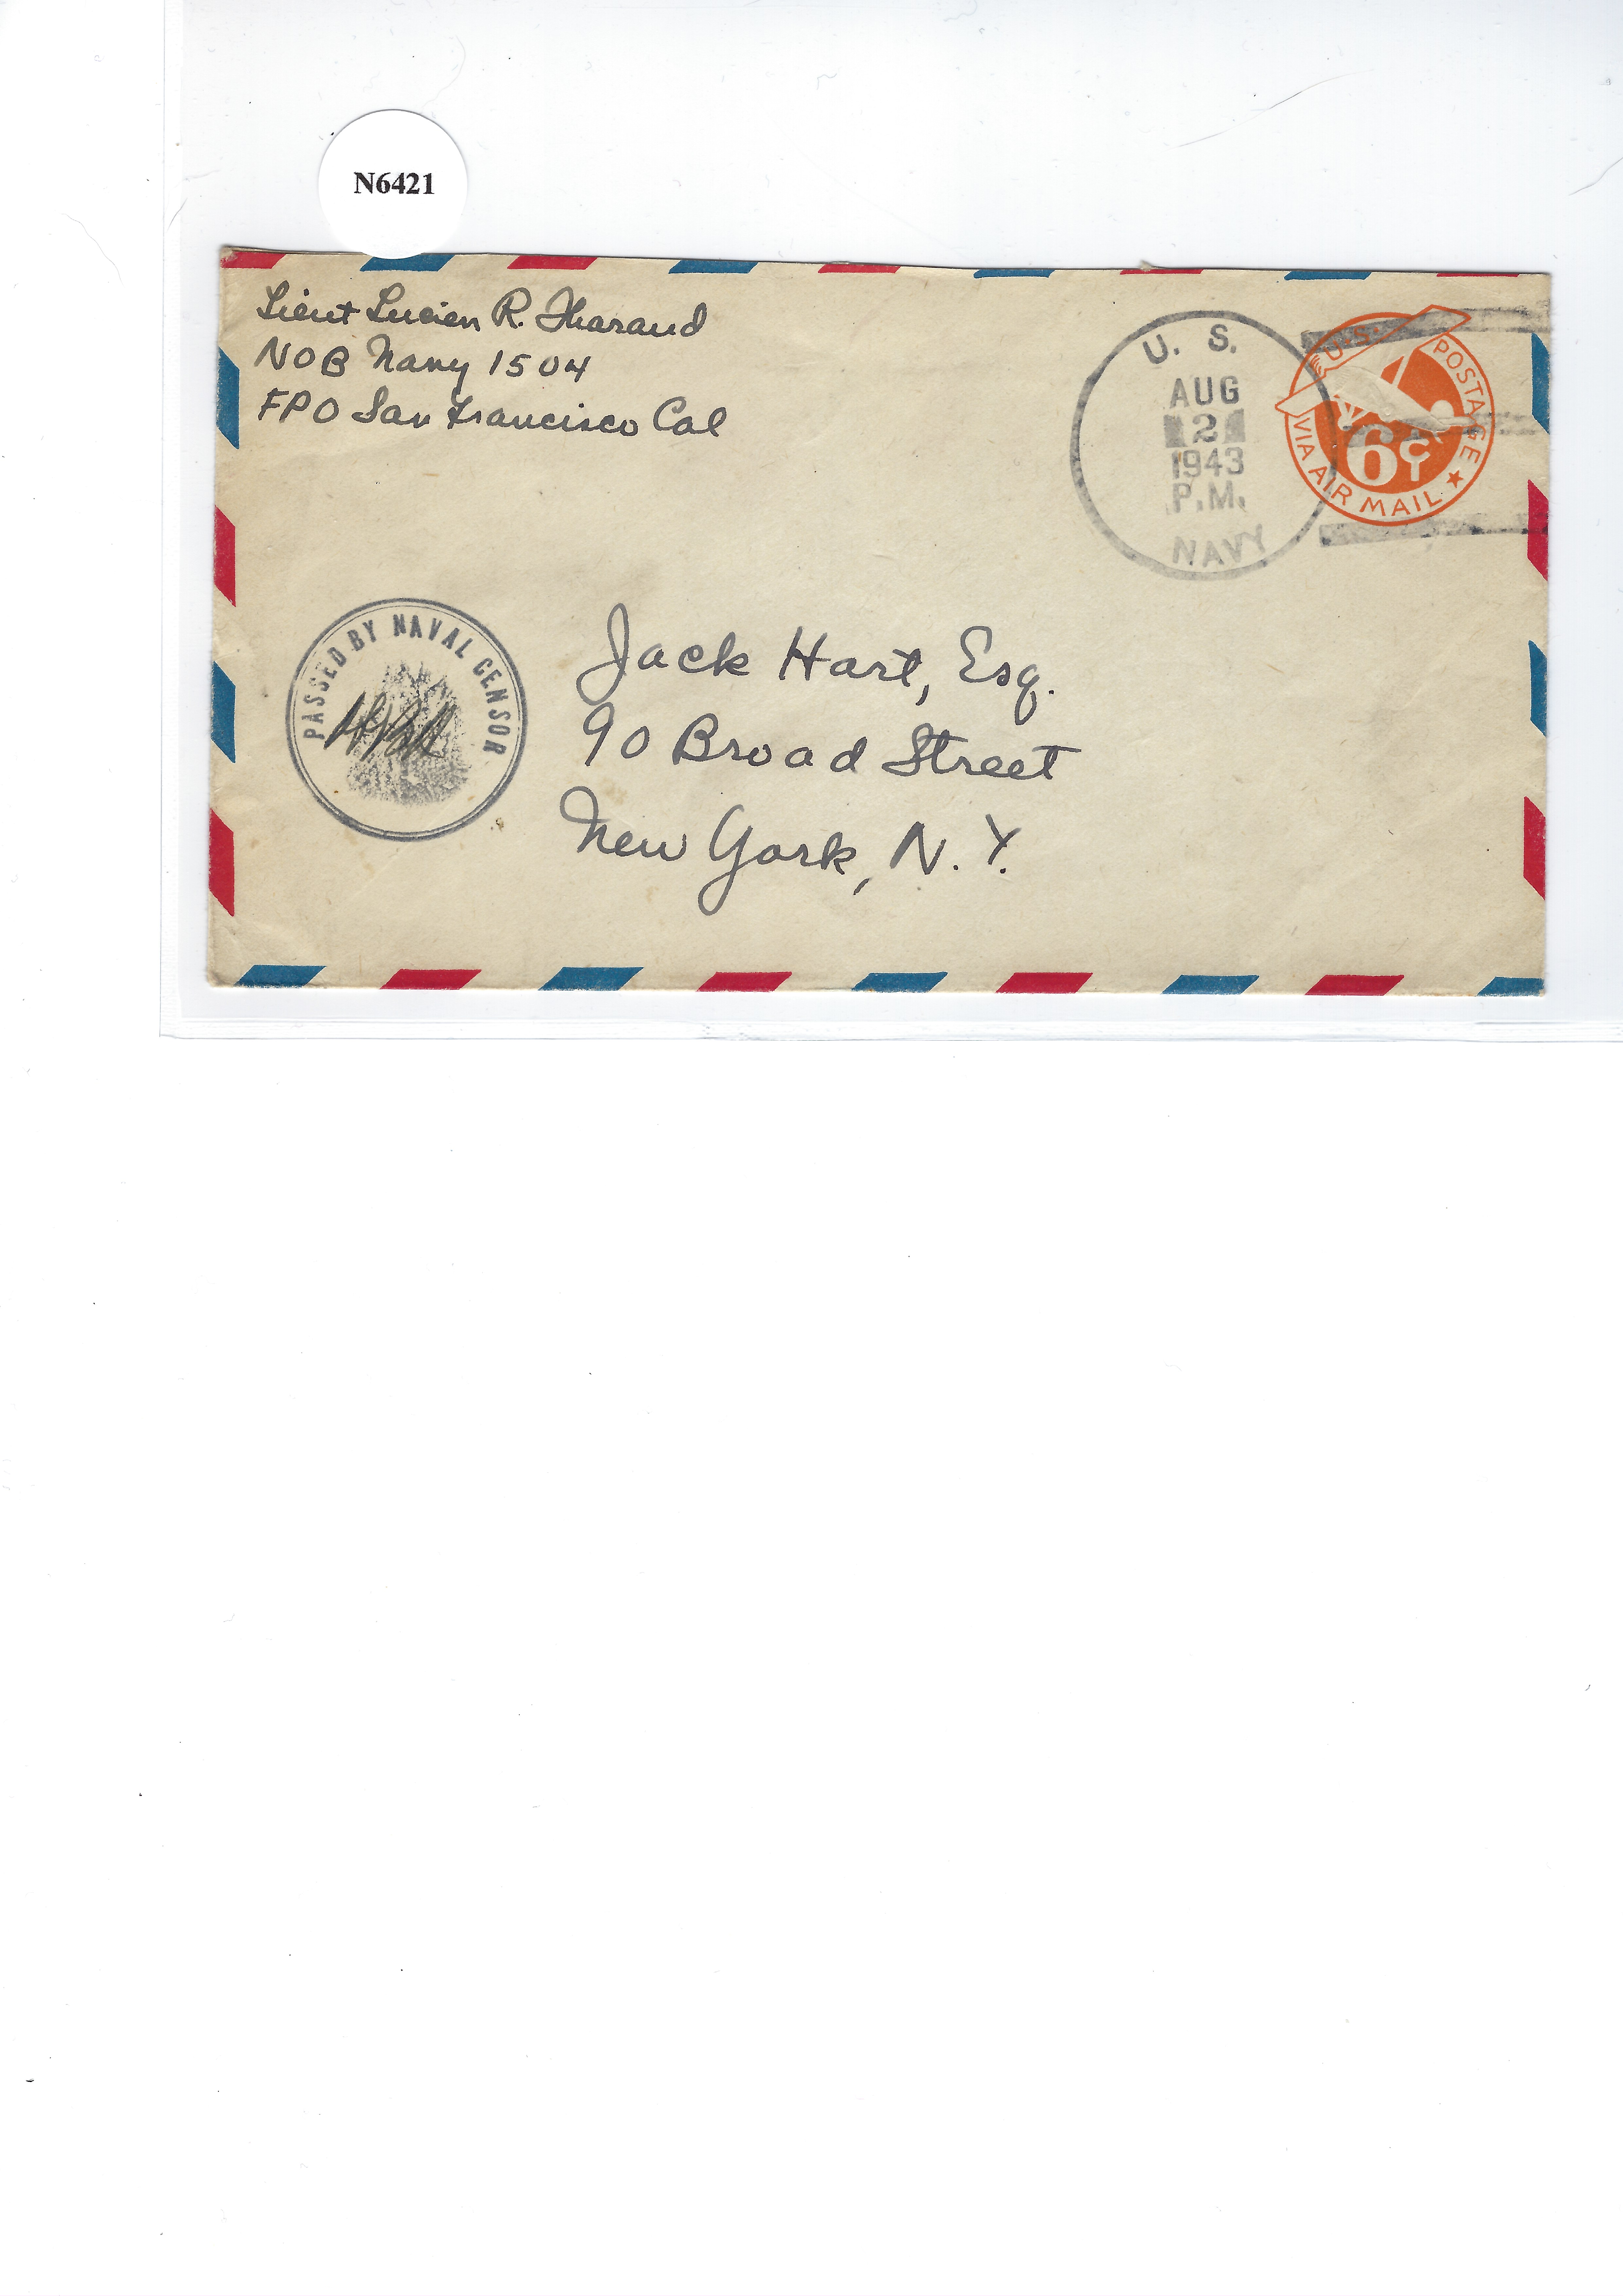 N6421
Lieut Lucien R. Tharaud
NOB Navy 1504
FPO San Francisco Cal
U. S.
AUG
2
1943
P.M.
NAVY
U.S. POSTAGE
6¢
VIA AIR MAIL
PASSED BY NAVAL CENSOR
Jack Hart, Esq.
90 Broad Street
New York, N.Y.